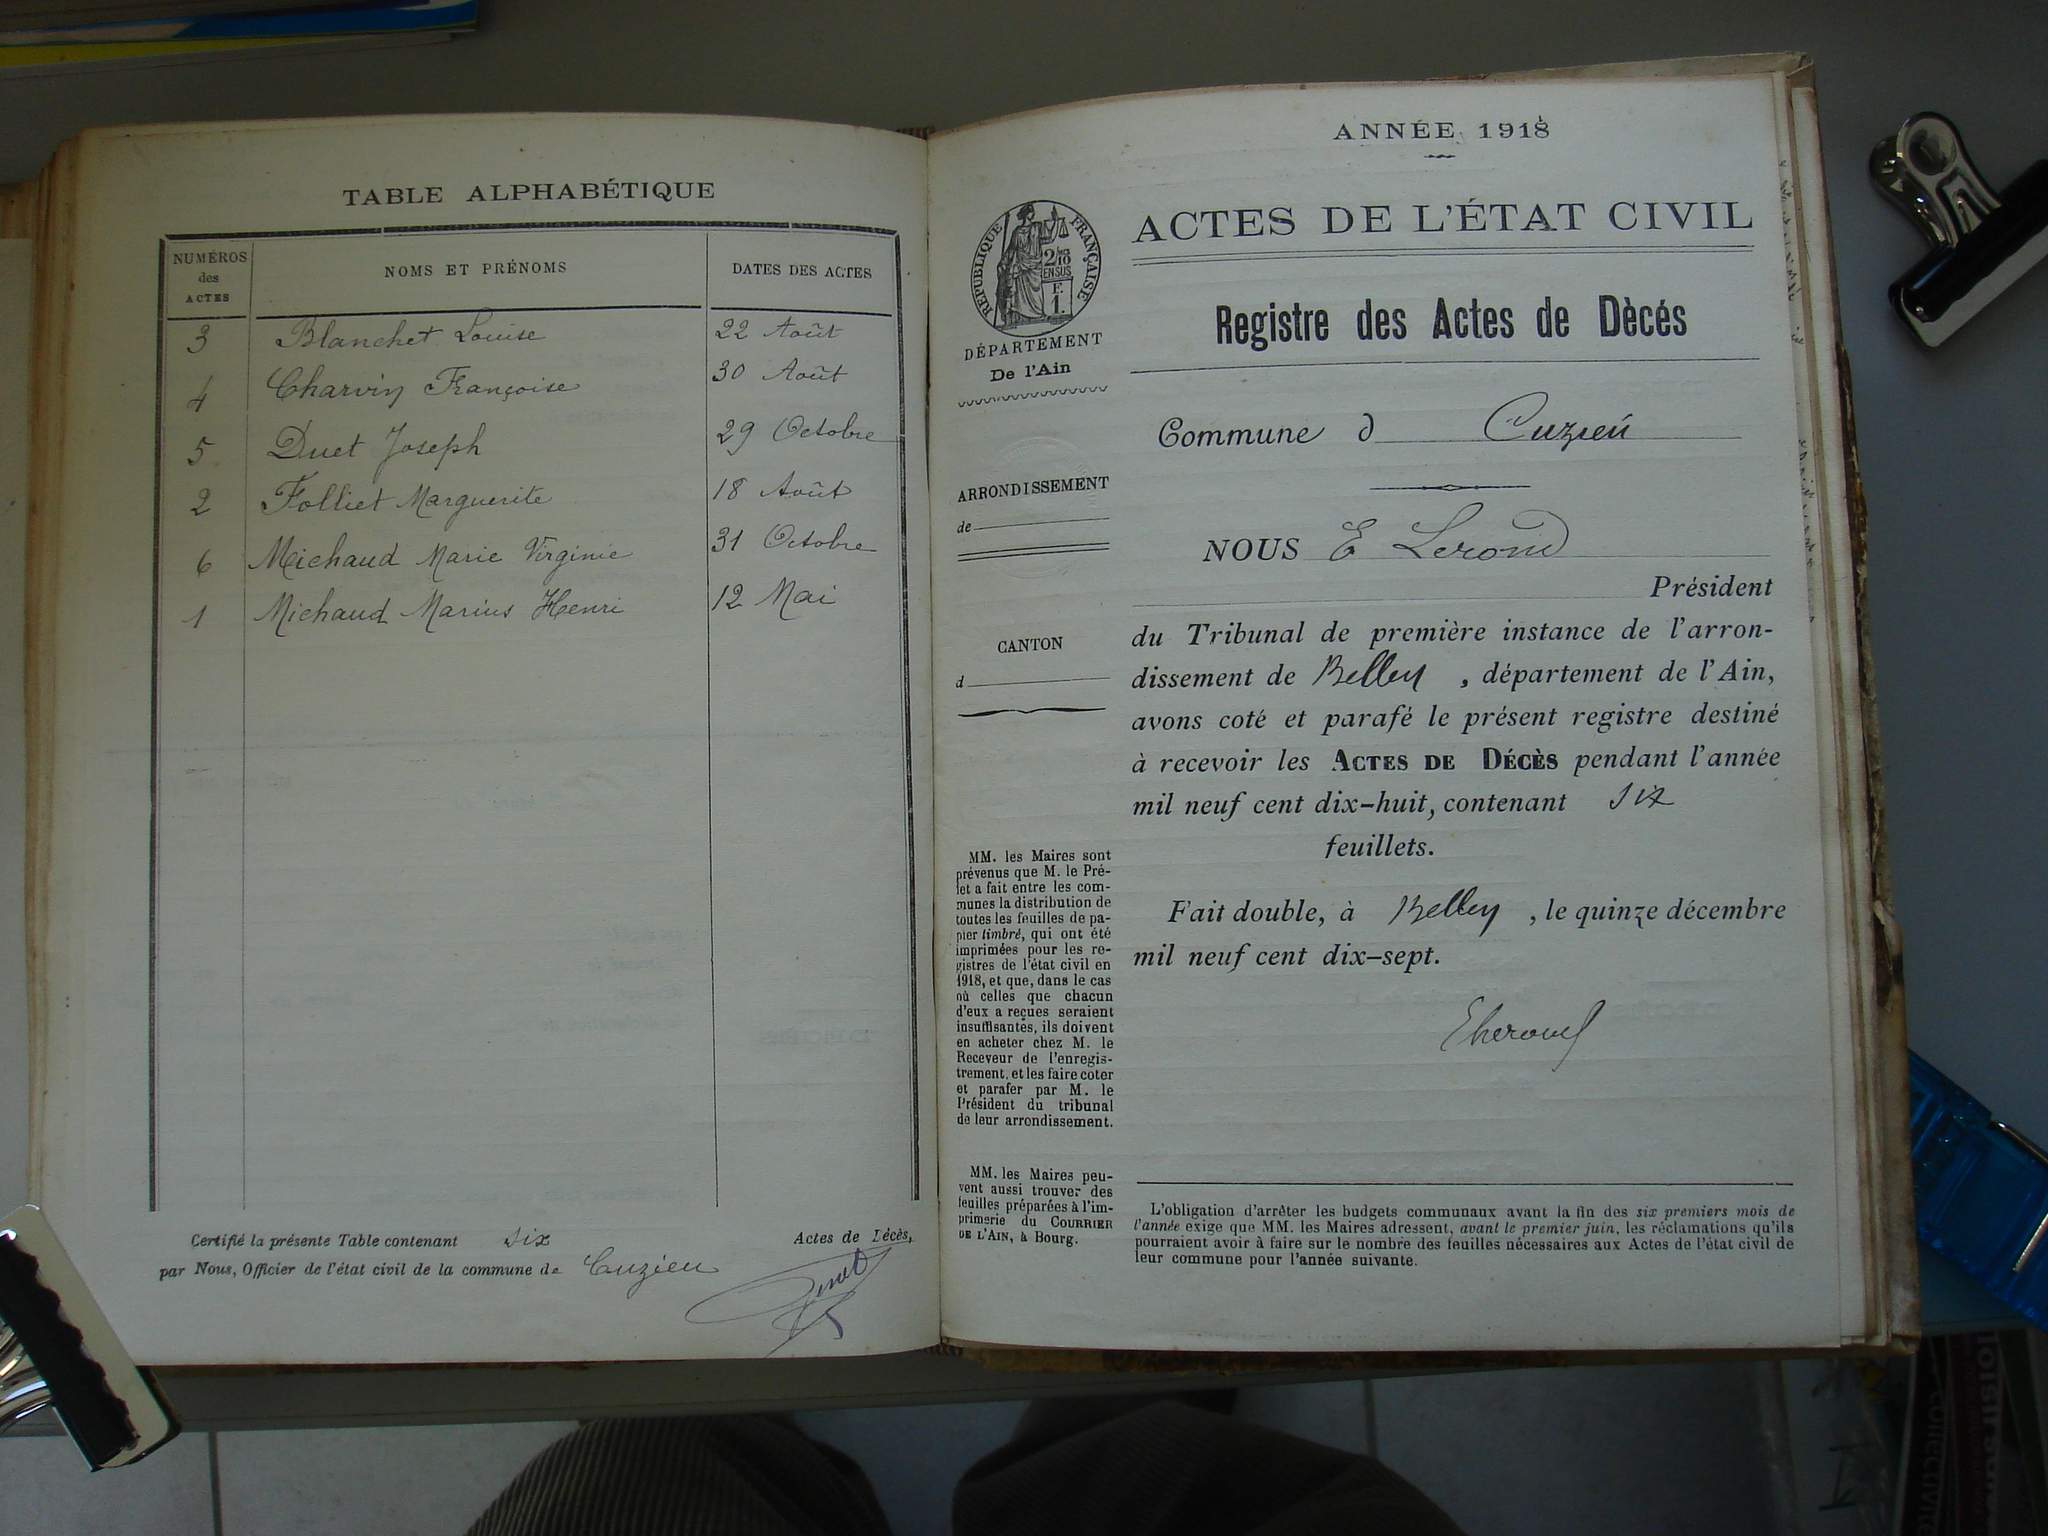 TABLE ALPHABÉTIQUE
NUMÉROS des ACTES
NOMS ET PRÉNOMS
DATES DES ACTES
3 Blanchet Louise 22 Août
4 Charvin Françoise 30 Août
5 Duet Joseph 29 Octobre
2 Folliet Marguerite 18 Août
6 Michaud Marie Virginie 31 Octobre
1 Michaud Marius Henri 12 Mai
Certifié la présente Table contenant six Actes de Décès,
par Nous, Officier de l'état civil de la commune de Cuzieu
ANNÉE 1918
RÉPUBLIQUE FRANÇAISE
2/10
EN SUS
F.
1.
DÉPARTEMENT
De l'Ain
ARRONDISSEMENT
de
CANTON
d
MM. les Maires sont
prévenus que M. le Pré-
fet a fait entre les com-
munes la distribution de
toutes les feuilles de pa-
pier timbré, qui ont été
imprimées pour les re-
gistres de l'état civil en
1918, et que, dans le cas
où celles que chacun
d'eux a reçues seraient
insuffisantes, ils doivent
en acheter chez M. le
Receveur de l'enregis-
trement, et les faire coter
et parafer par M. le
Président du tribunal
de leur arrondissement.
MM. les Maires peu-
vent aussi trouver des
feuilles préparées à l'im-
primerie du COURRIER
DE L'AIN, à Bourg.
ACTES DE L'ÉTAT CIVIL
Registre des Actes de Dècés
Commune d Cuzieu
NOUS E Lerond
Président
du Tribunal de première instance de l'arron-
dissement de Belley, département de l'Ain,
avons coté et parafé le présent registre destiné
à recevoir les ACTES DE DÉCÈS pendant l'année
mil neuf cent dix-huit, contenant six
feuillets.
Fait double, à Belley, le quinze décembre
mil neuf cent dix-sept.
L'obligation d'arrêter les budgets communaux avant la fin des six premiers mois de
l'année exige que MM. les Maires adressent, avant le premier juin, les réclamations qu'ils
pourraient avoir à faire sur le nombre des feuilles nécessaires aux Actes de l'état civil de
leur commune pour l'année suivante.